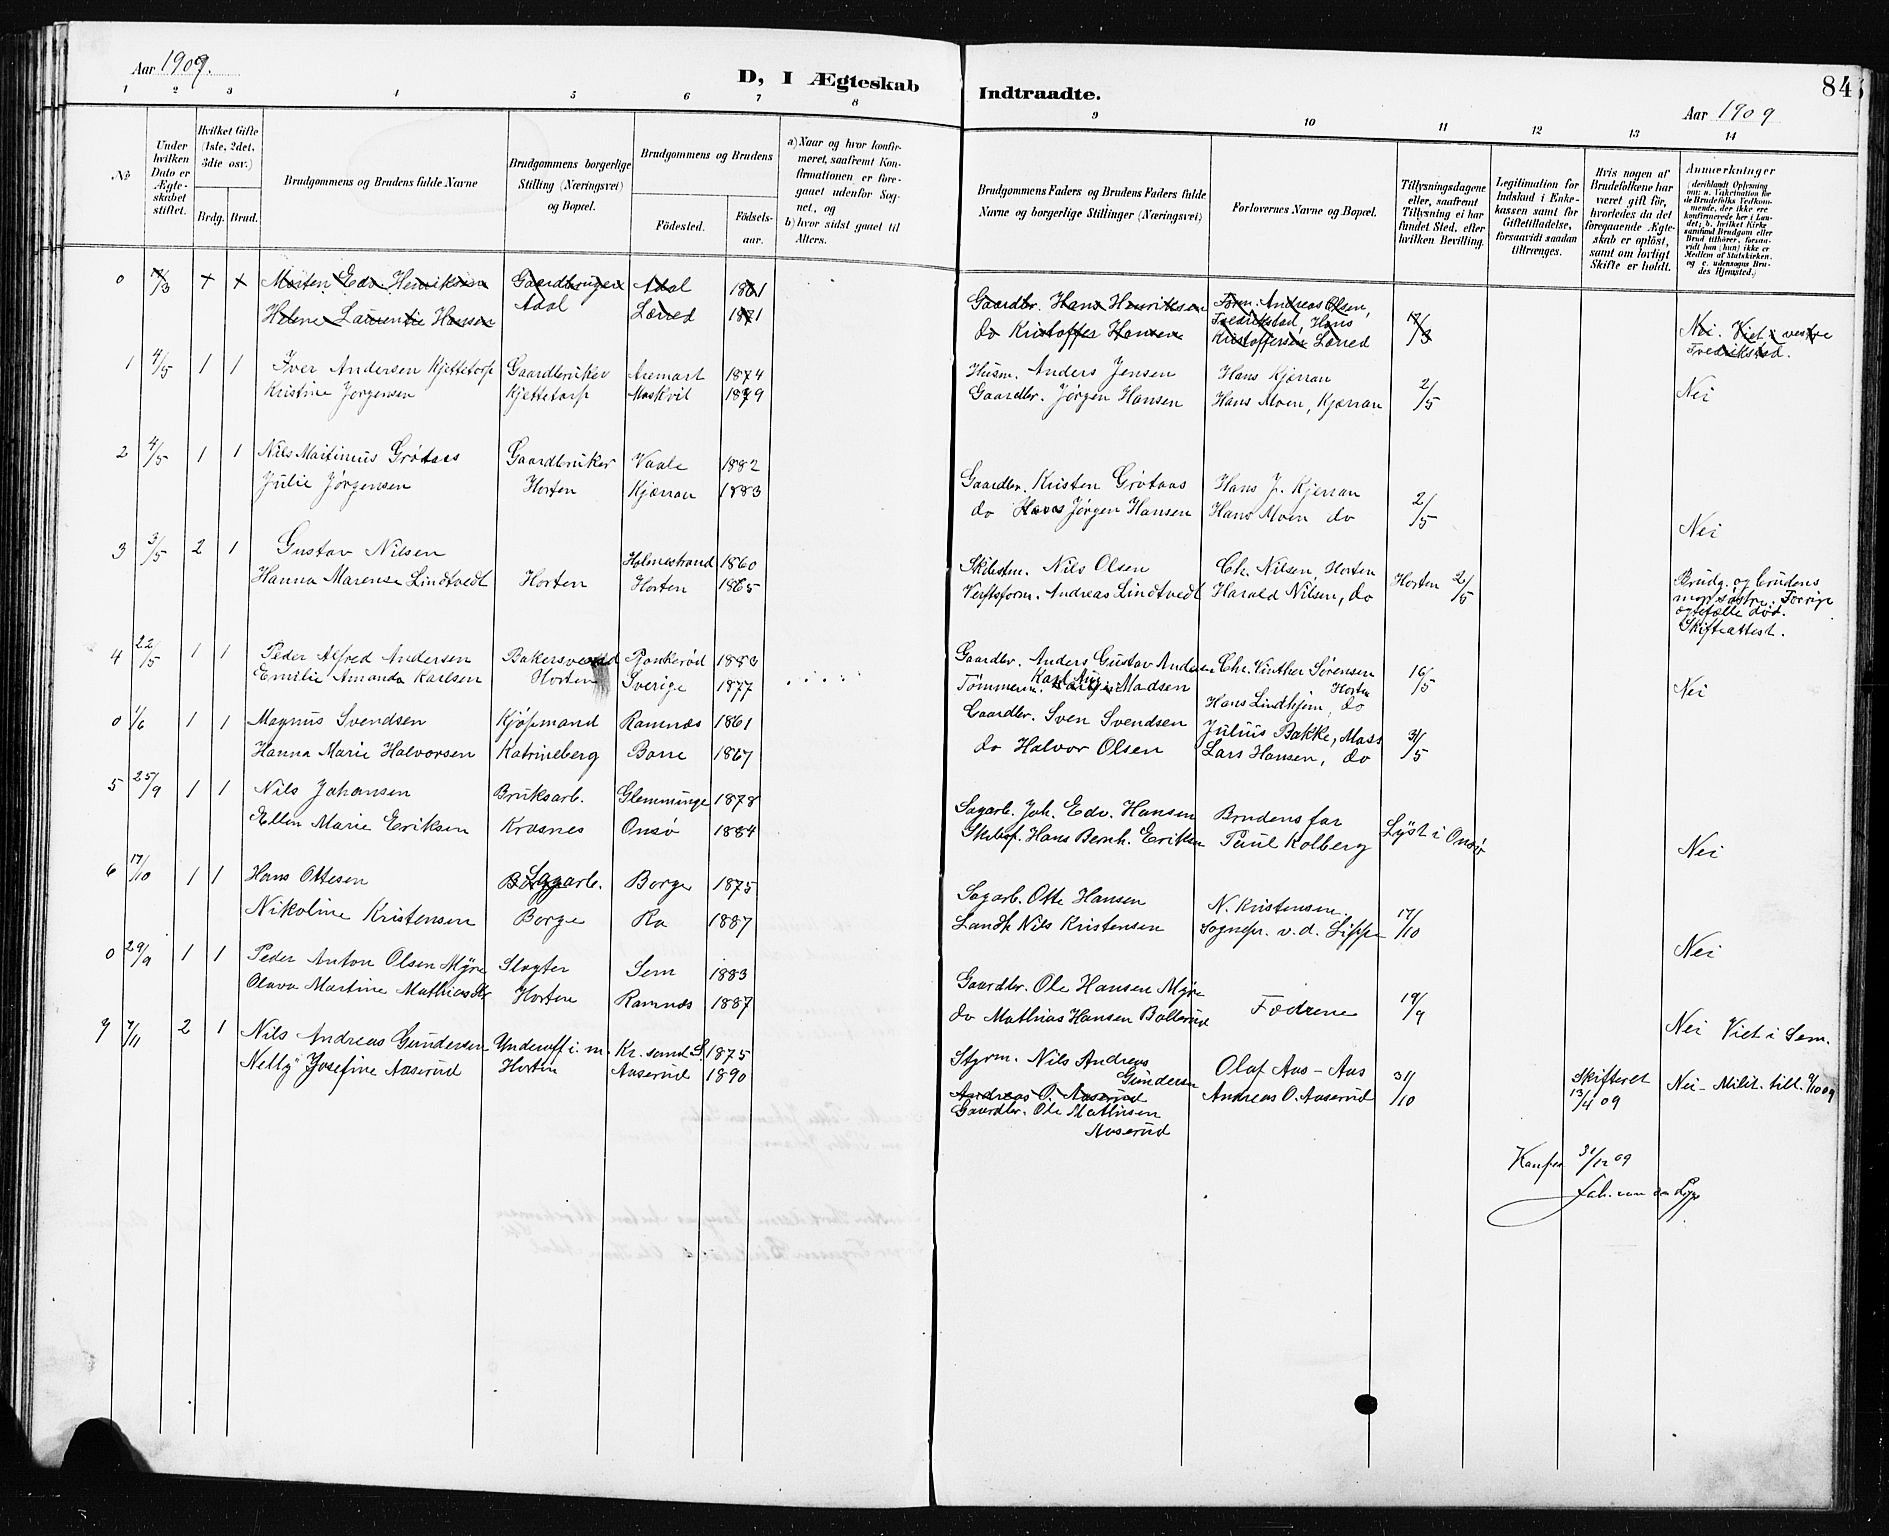 Aar 1909.
D, I Ægteskab
Indtraadte.
84
Aar 1909
1 2 3 4 5 6 7 8 9 10 11 12 13 14
No
Under hvilken Dato er Ægteskabet stiftet.
Hvilket Gifte (1ste, 2det, 3dte osv.)
Brdg. Brud.
Brudgommens og Brudens fulde Navne
Brudgommens borgerlige Stilling (Næringsvei) og Bopæl.
Brudgommens og Brudens
Fødested. Fødselsaar.
a) Naar og hvor konfirmeret, saafremt Konfirmationen er foregaaet udenfor Sognet, og
b) hvor sidst gaaet til Alters.
Brudgommens Faders og Brudens Faders fulde Navne og borgerlige Stillinger (Næringsvei)
Forlovernes Navne og Bopæl.
Tillysningsdagene eller, saafremt Tillysning ei har fundet Sted, efter hvilken Bevilling.
Legitimation for Indskud i Enkekassen samt for Giftetilladelse, forsaavidt saadan tiltrænges.
Hvis nogen af Brudefolkene har været gift før, hvorledes da det foregaaende Ægteskab er opløst, samt om lovligt Skifte er holdt.
Anmærkninger
(deriblandt Oplysning om: a. Vakcination for de Brudefolks Vedkommende, der ikke ere konfirmerede her i Landet; b. hvilket Kirkesamfund Brudgom eller Brud tilhører, forsaavidt han (hun) ikke er Medlem af Statskirken. og c. udensogns Brudes Hjemsted.)
0 17/3 + + Morten Edv. Henriksen Gaardbruger Adal 1861 Gaardbr. Hans Henriksen Tøm. Andreas Olsen,
Helene Laurentie Hansen Adal Lærred 1871 do Kristoffer Hansen Fredrikstad, Hans Kristoffersen Lærred 12/3 Nei. Viet i vestre Fredrikstad.
1 4/5 1 1 Iver Andersen Kjettetorp Gaardbruker 1874 Husm. Anders Jensen Hans Kjærran
Kristine Jørgensen Kjettetorp Moskvil 1879 Gaardbr. Jørgen Hansen Hans Moen, Kjærran 2/5 Nei
2 4/5 1 1 Nils Martinius Grøtaas Gaardbruker Vaale 1882 Gaardbr. Kristen Grøtaas Hans J. Kjærran
Julie Jørgensen Horten Kjærran 1883 do Hans Jørgen Hansen Hans Moen do 2/5 Nei
3 3/5 2 1 Gustav Nilsen Holmestrand 1860 Skibstm. Nils Olsen Ch. Nilsen, Horten
Hanna Marense Lindtvedt Horten Horten 1865 Verftsform. Andreas Lindtvedt Harald Nilsen, do Horten 2/5 Brudg. og brudens
mor søstre. Forrige
egtefælle død.
Skifteattest.
4 22/5 1 1 Peder Alfred Andersen Bakersvend 1883 Gaardbr. Anders Gustav Andersen Chr. Vinther Sørensen Horten 16/5
Emilie Amanda Karlsen Horten Sverige 1877 Tømmerm. Karl Madsen Hans Lindhjem, do Nei
0 1/6 1 1 Magnus Svendsen Kjøpmand Ramnæs 1861 Gaardbr. Sven Svendsen Julius Bakke, Mass
Hanna Marie Halvorsen Katrineberg Borre 1867 do Halvor Olsen Lars Hansen, do 31/5
5 25/9 1 1 Nils Johansen Bruksarb. Glemminge 1878 Sagarb. Joh. Edv. Hansen Brudens far
Ellen Marie Eriksen Krosnes Onsø 1884 Skibsf. Hans Bernh. Eriksen Paul Kolberg Lyst i Onsø Nei
6 17/10 1 1 Hans Ottesen Saggarb. Borge 1875 Sagarb. Otte Hansen N. Kristensen
Nikoline Kristensen Borge Ra 1887 Landh. Nils Kristensen Sognepr. v.d. Lippe 17/10 Nei
0 29/9 1 1 Peder Anton Olsen Myre Slagter Sem 1883 Gaardbr. Ole Hansen Myre Fædrene 19/9
Olava Martine Mathiasdtr Horten Ramnæs 1887 do Mathias Hansen Bollerud Nei Viet i Sem.
7 7/11 2 1 Nils Andreas Gundersen Underoff. i. m. Kr.sand S 1875 Styrm. Nils Andreas Gundersen Olaf Aas - Aas
Nelly Josefine Aaserud Horten Aaserud 1890 Andreas O. Aaserud Andreas O. Aaserud 31/10 Skifteret 13/4 09 Nei - Milit. till. 9/10 09
Gaardbr. Ole Mathisen
Aaserud
31/12 09
Joh. van der Lippe